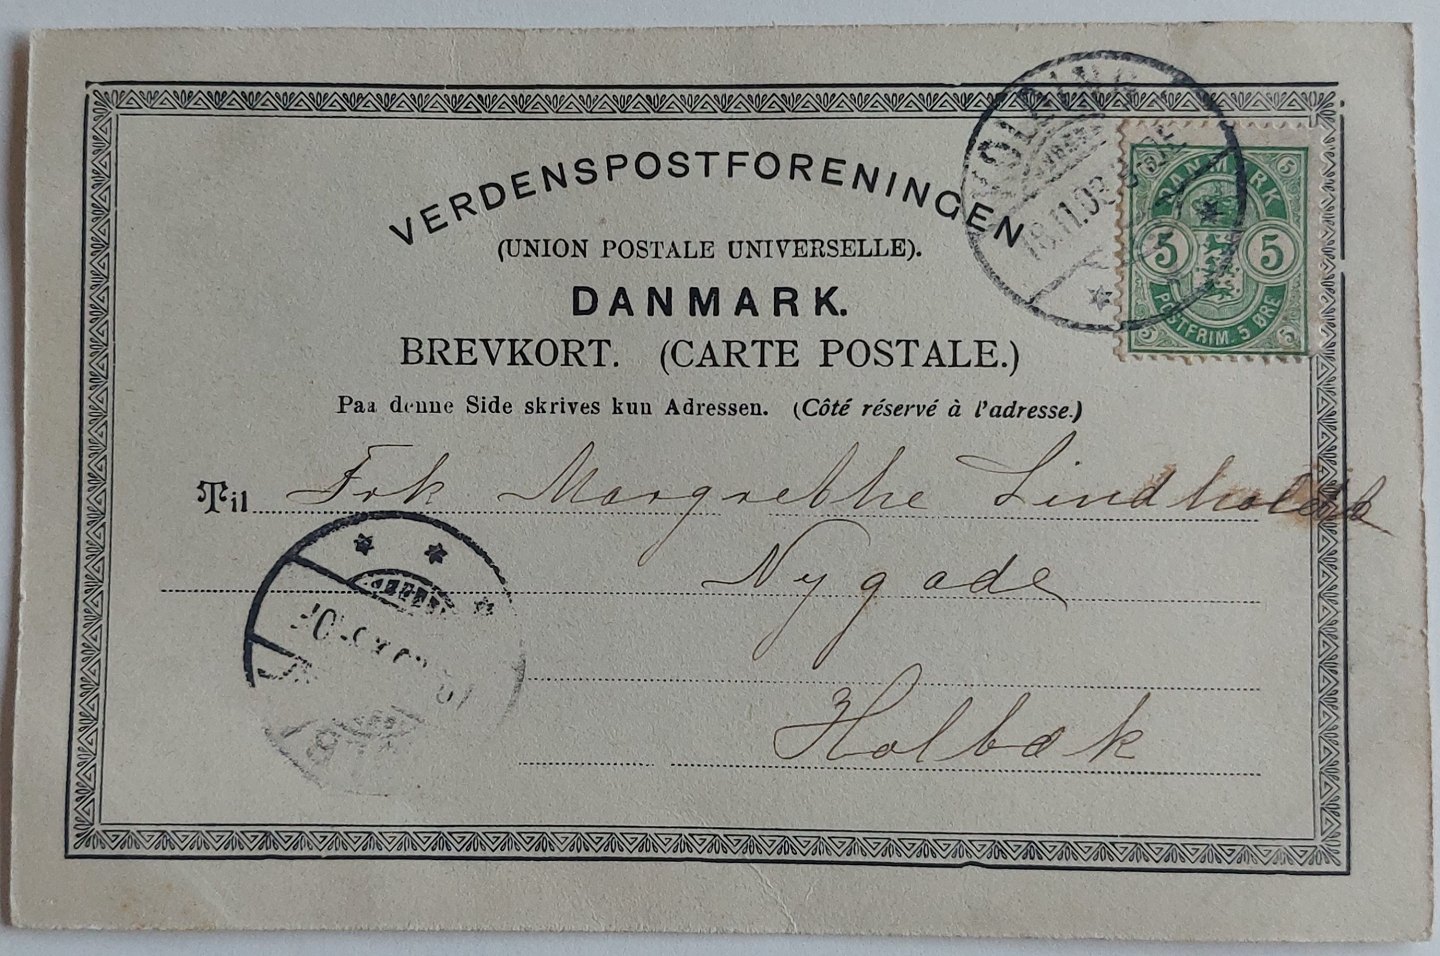 VERDENSPOSTFORENINGEN
(UNION POSTALE UNIVERSELLE).
DANMARK.
BREVKORT. (CARTE POSTALE.)
Paa denne Side skrives kun Adressen. (Côté réservé à l'adresse.)
Til Frk Margrethe
Nygade
Holbæk
KOLDING
18.11.03
DANMARK
5 5
POSTFRIM. 5 ØRE
5 5 5 5